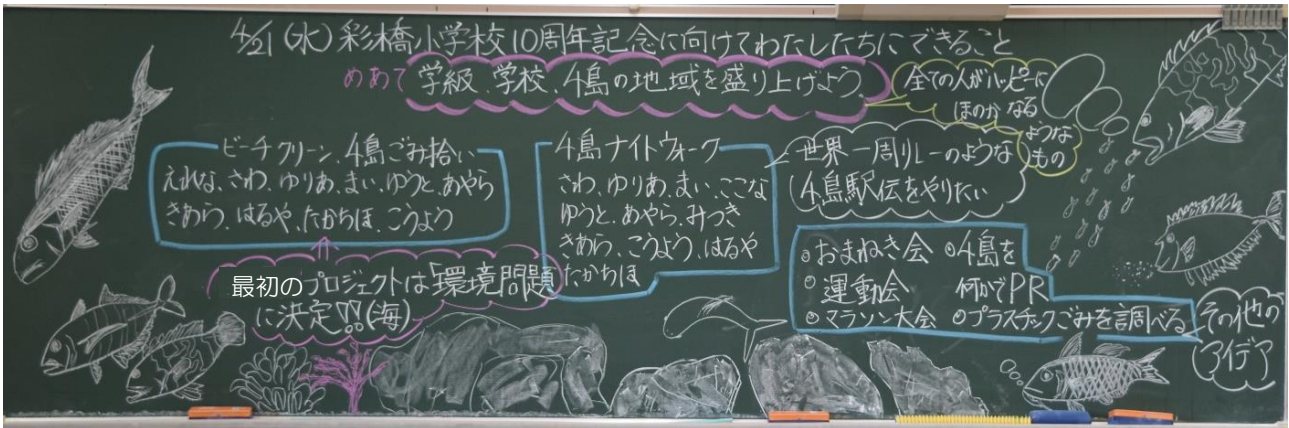 4/21(水)彩橋小学校10周年記念に向けてわたしたちにできること
めあて 学級、学校、4島の地域を盛り上げよう。
全ての人がハッピーに
ほのか なる
ような
もの
ビーチクリーン、4島ごみ拾い
えれな、さわ、ゆりあ、まい、ゆうと、あやら
きあら、はるや、たからほ、こうよう
最初のプロジェクトは「環境問題
に決定!!(海)
4島ナイトウォーク
さわ、ゆりあ、まい、ここな
ゆうと、あやら、みつき
きあら、こうよう、はるや
たからほ
世界一周リレーのような
4島駅伝をやりたい
おまねき会
運動会
マラソン大会
4島を
何かでPR
プラスチックごみを調べる
その他の
アイデア